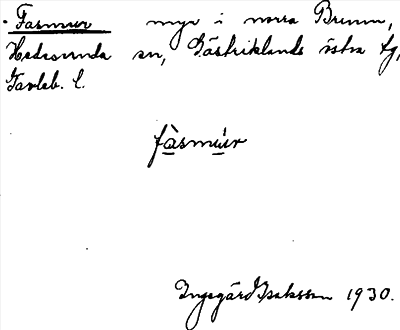 Fasmur myr i norra Brunn,
Hedesunda sn, Gästriklands östra tg,
Gävleb. l.
fàsmúr
Ingegärd Isaksson 1930.